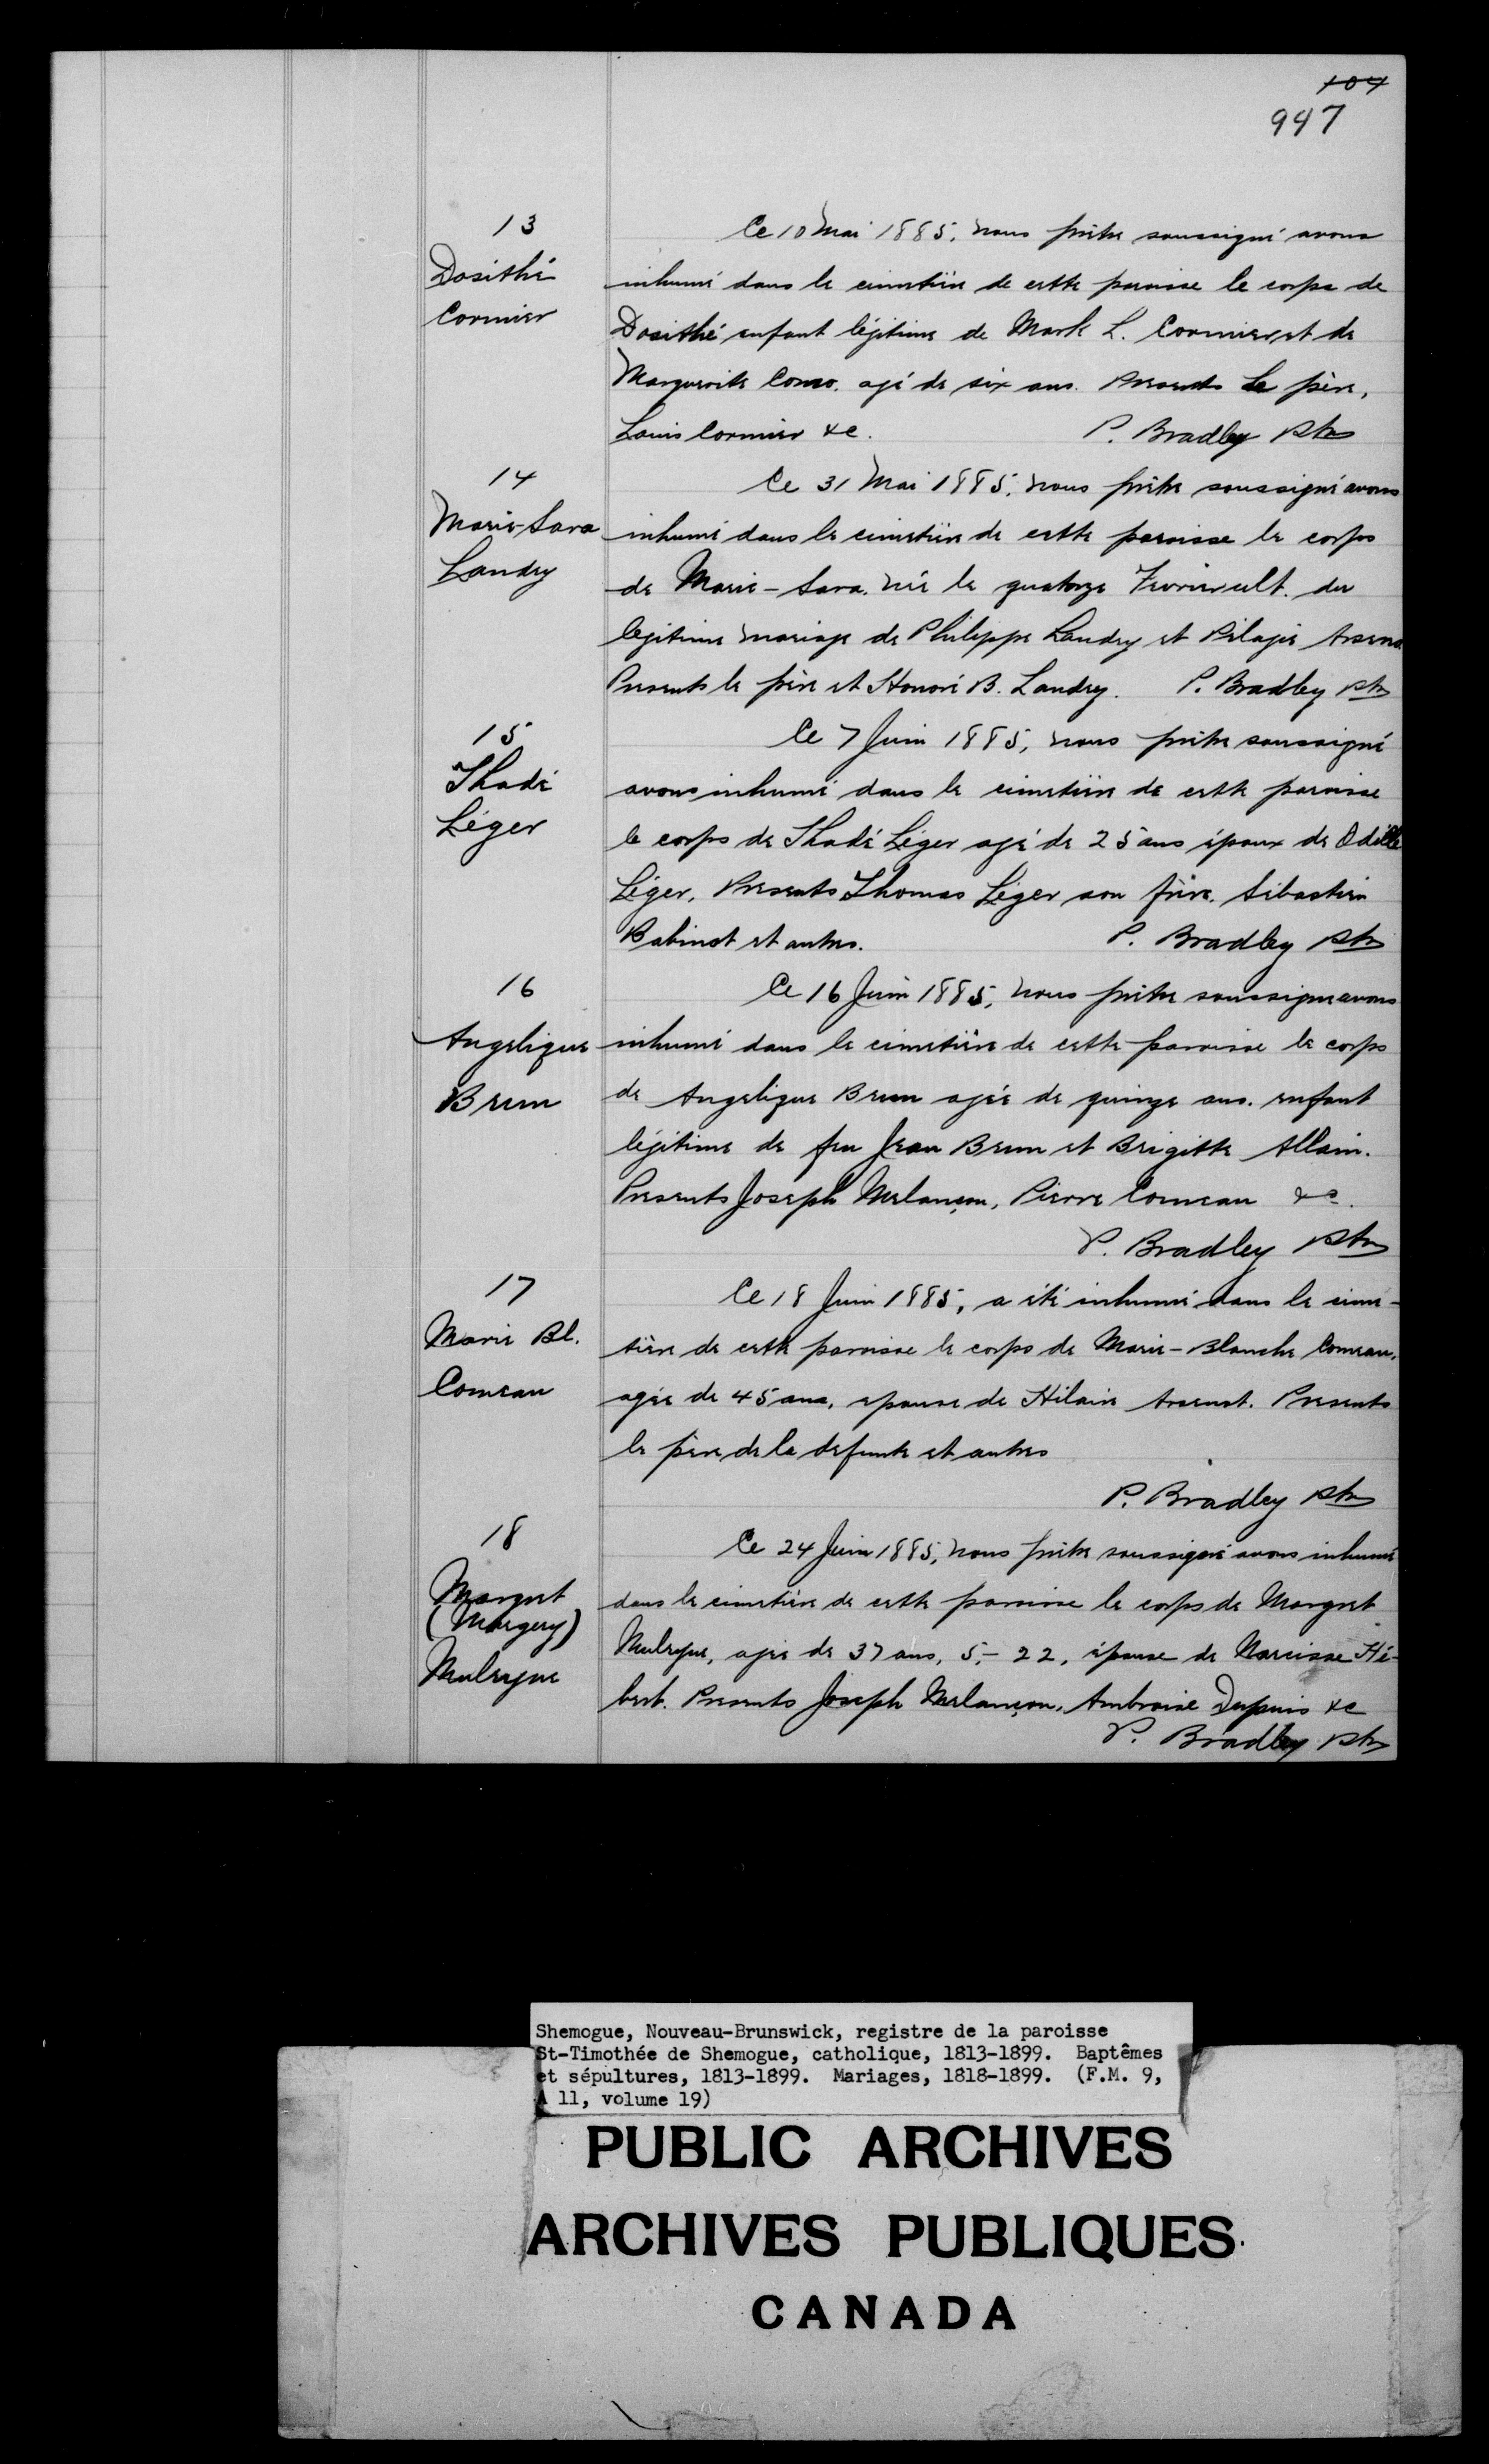 104
947
13
Dosithé
Cormier
Ce 10 Mai 1885, nous prêtre soussigné avons
inhumé dans le cimetière de cette paroisse le corps de
Dosithé enfant légitime de Mark L. Cormier et de
Marguerite Como. agé de six ans. Presents Le père,
Louis Cormier &c. P. Bradley Ptre
14
Marie-Sara
Landry
Ce 31 Mai 1885, nous prêtre soussigné avons
inhumé dans le cimetière de cette paroisse le corps
de Marie-Sara. née le quatorze Fevrier ult. du
legitime mariage de Philippe Landry et Pélagie Arseno.
Presents le père et Honoré B. Landry. P. Bradley Ptre
15
Thadé
Léger
Ce 7 Juin 1885, nous prêtre soussigné
avons inhumé dans le cimetière de cette paroisse
le corps de Thadé Léger agé de 25 ans époux de Odille
Léger. Presents Thomas Léger son frère. Sébastien
Babinot et autres. P. Bradley Ptre
16
Angelique
Brun
Ce 16 Juin 1885, nous prêtre soussigne avons
inhumé dans le cimetière de cette paroisse le corps
de Angelique Brun agée de quinze ans. enfant
légitime de feu Jean Brun et Brigitte Allain.
Presents Joseph Melançon, Pierre Comeau &c.
P. Bradley Ptre
17
Marie Bl.
Comeau
Ce 18 Juin 1885, a été inhumé dans le cime-
tière de cette paroisse le corps de Marie-Blanche Comeau,
agée de 45 ans, epouse de Hilaire Arsenot. Presents
le père de la defunte et autres
P. Bradley Ptre
18
Margret
(Margery)
Mulryne
Ce 24 Juin 1885, nous prêtre soussigné avons inhumé
dans le cimetière de cette paroisse le corps de Margret
Mulryne, agée de 37 ans, 5,- 22, épouse de Narcisse Hé-
bert. Presents Joseph Melançon, Ambroise Dupuis &c
P. Bradley Ptre
Shemogue, Nouveau-Brunswick, registre de la paroisse
St-Timothée de Shemogue, catholique, 1813-1899. Baptêmes
et sépultures, 1813-1899. Mariages, 1818-1899. (F.M. 9,
A 11, volume 19)
PUBLIC ARCHIVES
ARCHIVES PUBLIQUES
CANADA